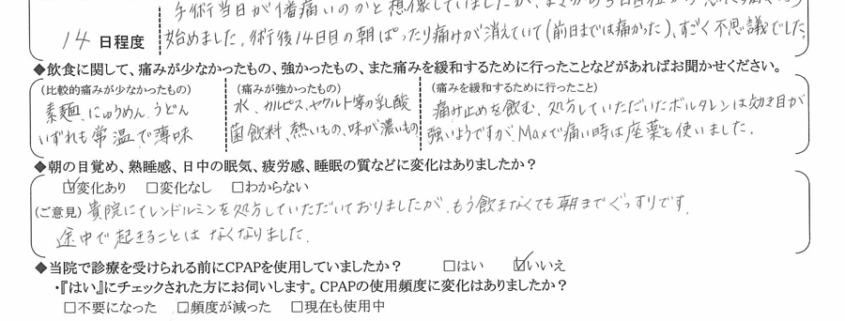 手術当日が1番痛いのかと想像していましたが、
14日程度
始めました。術後14日目の朝ぱったり痛みが消えていて(前日までは痛かった)、すごく不思議でした。
◆飲食に関して、痛みが少なかったもの、強かったもの、また痛みを緩和するために行ったことなどがあればお聞かせください。
(比較的痛みが少なかったもの) (痛みが強かったもの) (痛みを緩和するために行ったこと)
素麺、にゅうめん、うどん 水、カルピス、ヤクルト等の乳酸 痛み止めを飲む。処方していただいたボルタレンは効き目が
いずれも常温で薄味 菌飲料、熱いもの、味が濃いもの 強いようですが、Maxで痛い時は座薬も使いました。
◆朝の目覚め、熟睡感、日中の眠気、疲労感、睡眠の質などに変化はありましたか?
☑変化あり □変化なし □わからない
(ご意見) 貴院にてレンドルミンを処方していただいておりましたが、もう飲まなくても朝までぐっすりです。
途中で起きることはなくなりました。
◆当院で診療を受けられる前にCPAPを使用していましたか? □はい ☑いいえ
・『はい』にチェックされた方にお伺いします。CPAPの使用頻度に変化はありましたか?
□不要になった □頻度が減った □現在も使用中